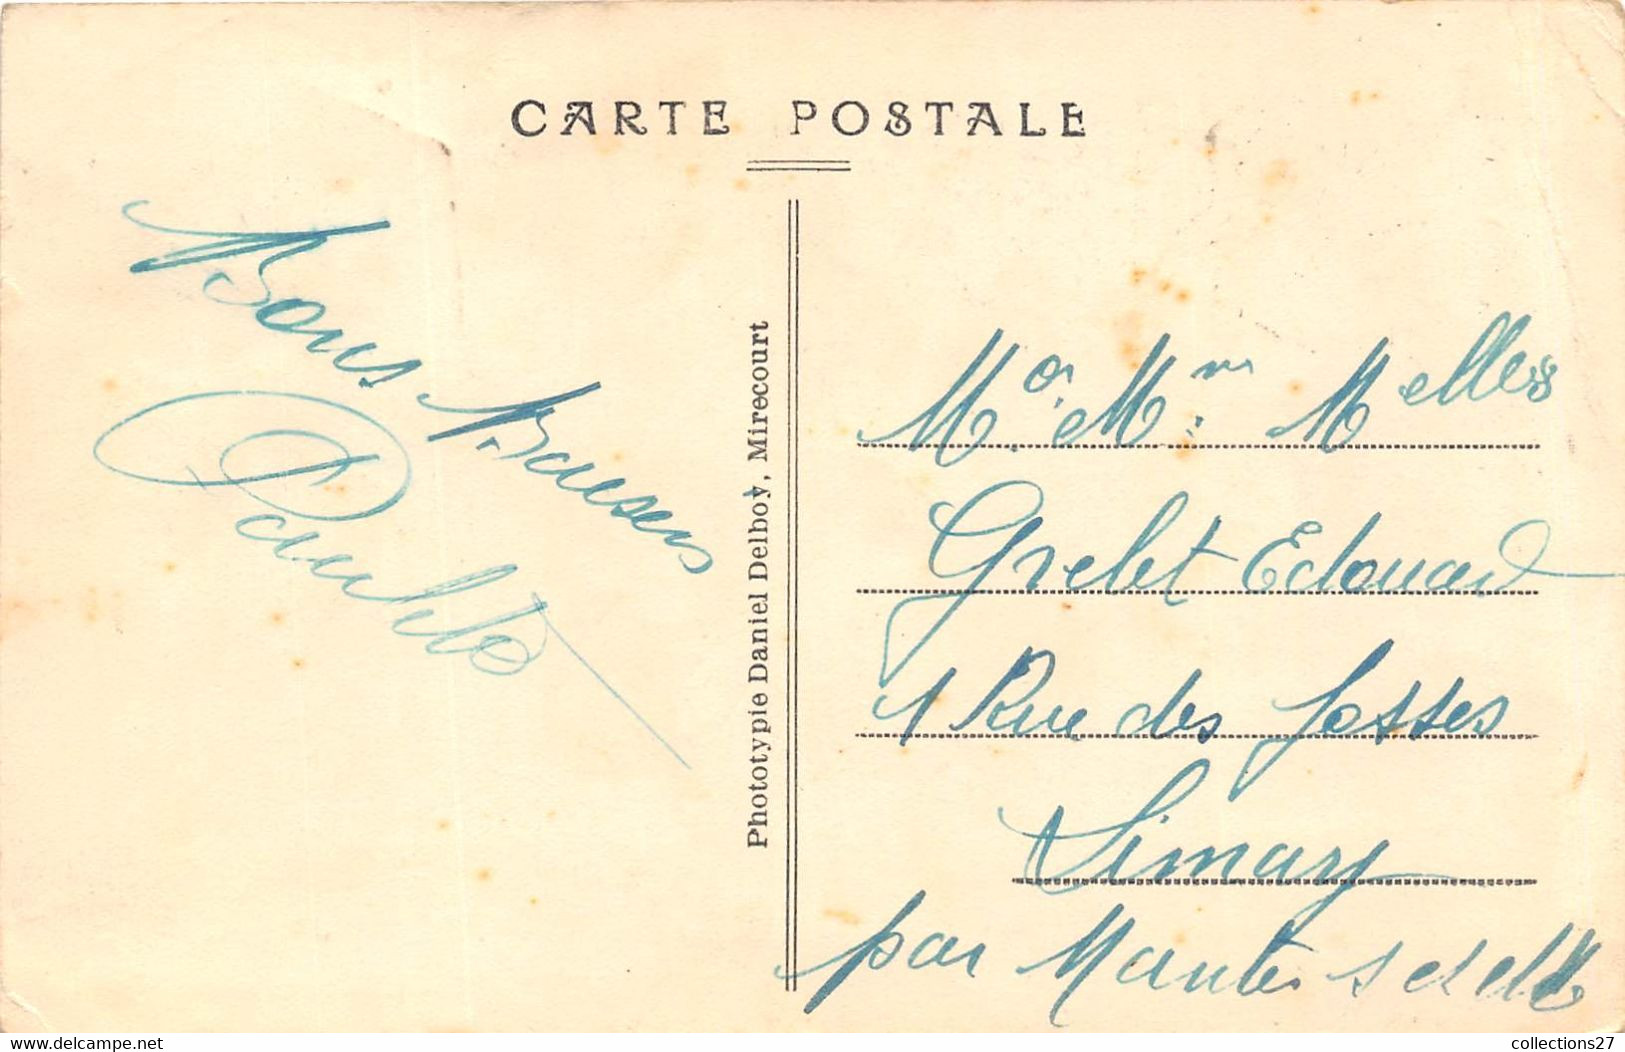 CARTE POSTALE
Bons Baisers
Paulette
Phototypie Daniel Delboy, Mirecourt
Mr. et Mme: Melles
Grelet Edouard
1 Rue des fosses
Limay
par Mantes S et
www.delcampe.net
collections27